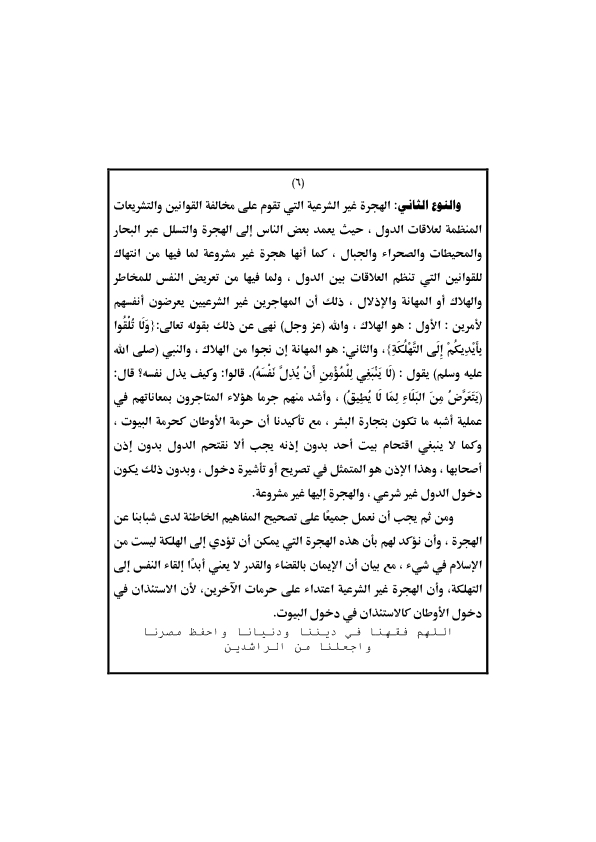 (٦)
والنوع الثاني: الهجرة غير الشرعية التي تقوم على مخالفة القوانين والتشريعات
المنظمة لعلاقات الدول ، حيث يعمد بعض الناس إلى الهجرة والتسلل عبر البحار
والمحيطات والصحراء والجبال ، كما أنها هجرة غير مشروعة لما فيها من انتهاك
للقوانين التي تنظم العلاقات بين الدول ، ولما فيها من تعريض النفس للمخاطر
والهلاك أو المهانة والإذلال ، ذلك أن المهاجرين غير الشرعيين يعرضون أنفسهم
لأمرين : الأول : هو الهلاك ، والله (عز وجل) نهى عن ذلك بقوله تعالى:{وَلَا تُلْقُوا
بِأَيْدِيكُمْ إِلَى التَّهْلُكَةِ}، والثاني: هو المهانة إن نجوا من الهلاك ، والنبي (صلى الله
عليه وسلم) يقول : (لَا يَنْبَغِي لِلْمُؤْمِنِ أَنْ يُذِلَّ نَفْسَهُ). قالوا: وكيف يذل نفسه؟ قال:
(يَتَعَرَّضُ مِنَ البَلَاءِ لِمَا لَا يُطِيقُ) ، وأشد منهم جرما هؤلاء المتاجرون بمعاناتهم في
عملية أشبه ما تكون بتجارة البشر ، مع تأكيدنا أن حرمة الأوطان كحرمة البيوت ،
وكما لا ينبغي اقتحام بيت أحد بدون إذنه يجب ألا نقتحم الدول بدون إذن
أصحابها ، وهذا الإذن هو المتمثل في تصريح أو تأشيرة دخول ، وبدون ذلك يكون
دخول الدول غير شرعي ، والهجرة إليها غير مشروعة.
ومن ثم يجب أن نعمل جميعًا على تصحيح المفاهيم الخاطئة لدى شبابنا عن
الهجرة ، وأن نؤكد لهم بأن هذه الهجرة التي يمكن أن تؤدي إلى الهلكة ليست من
الإسلام في شيء ، مع بيان أن الإيمان بالقضاء والقدر لا يعني أبدًا إلقاء النفس إلى
التهلكة، وأن الهجرة غير الشرعية اعتداء على حرمات الآخرين، لأن الاستئذان في
دخول الأوطان كالاستئذان في دخول البيوت.
اللهم فقهنا في ديننا ودنيانا واحفظ مصرنا
واجعلنا من الراشدين